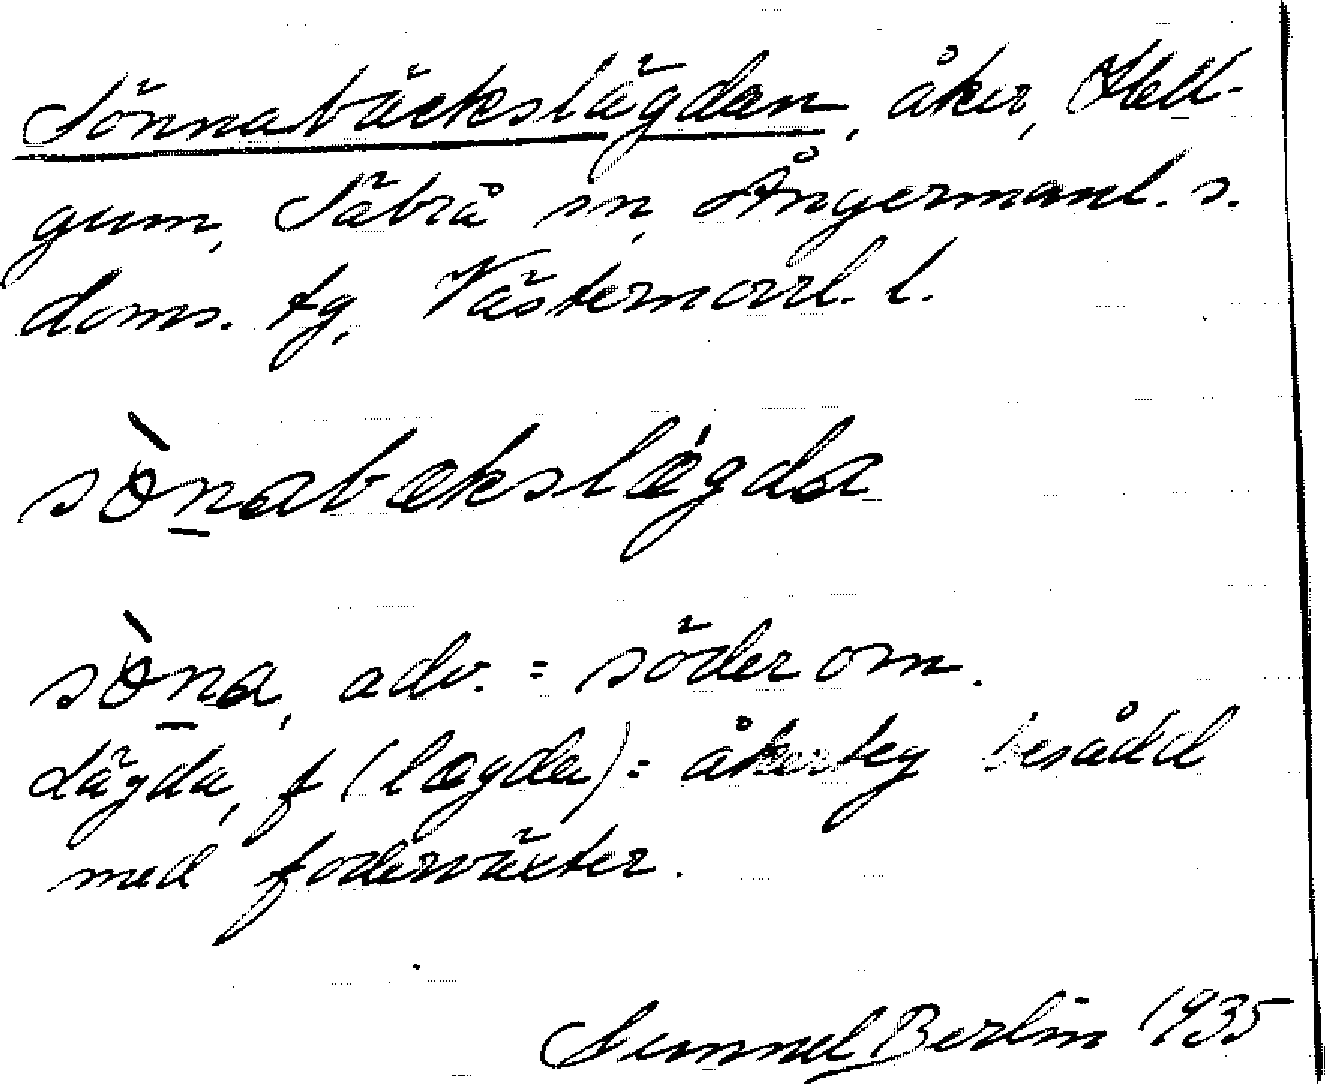 Sönnabäckslägden, åker, Häll-
gum, Säbrå sn, Ångermanl. s.
doms. tg, Västernorrl. l.
sø̀nabækslǽgda
sø̀na, adv. = söder om.
Lägda, f (lægda) = åkerteg besådd
med foderväxter.
Berlin 1935